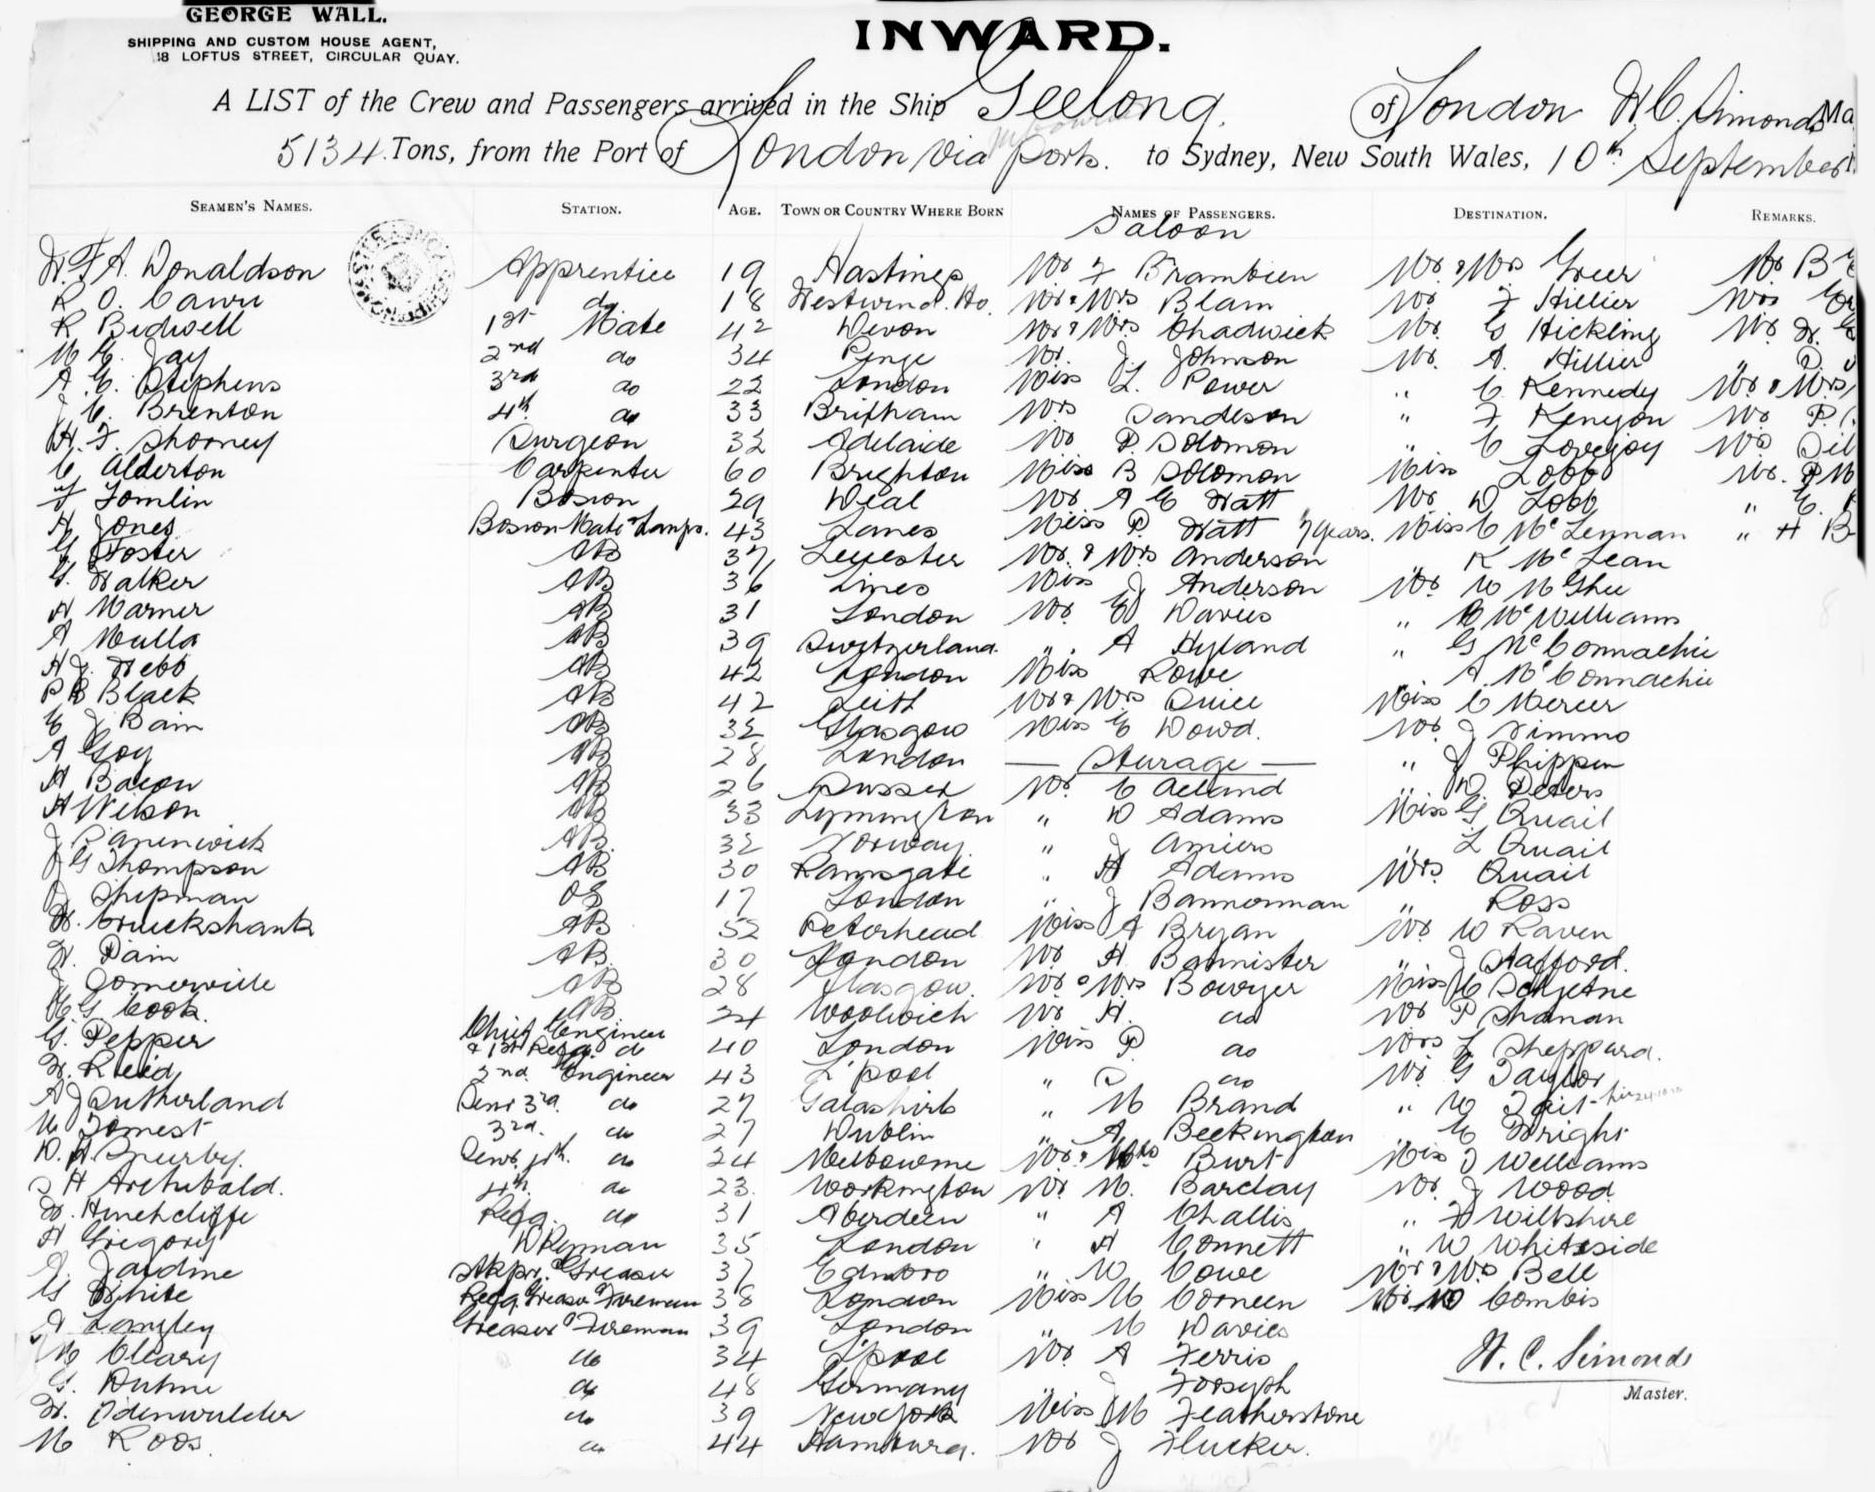 GEORGE WALL.
SHIPPING AND CUSTOM HOUSE AGENT,
18 LOFTUS STREET, CIRCULAR QUAY.
INWARD.
A LIST of the Crew and Passengers arrived in the Ship Geelong. of London H. C. Simonds Ma
5134 Tons, from the Port of London via Ports. to Sydney, New South Wales, 10th September
SEAMEN'S NAMES. STATION. AGE. TOWN OR COUNTRY WHERE BORN NAMES OF PASSENGERS. DESTINATION. REMARKS.
Saloon
Donaldson Apprentice 19 Hastings Mr F Mr & Mrs Greer Mr B
R O do 18 Mr & Mrs Blam Mr F Hillier Mrs
R Bidwell 1st Mate 42 Devon Mr & Mrs Chadwick Mr G Hickling Mr
Jay 2nd do 34 Penge Mr. J. Johnson Mr. A. Hillier "
A. E. Stephens 3rd do 22 London Miss L. Power " C Kennedy Mr & Mrs
J C. Brenton 4th do 33 Brixham Mrs Sandeson " F Kenyon Mr P.
H. F. Shorney Surgeon 32 Adelaide Mr P. Solomon " C Lovejoy Mr
C Alderton Carpenter 60 Brighton Miss B Solomon Miss Lobb Mr. P
F Tomlin Bosun 29 Deal Mr A E Watt Mr D Lobb "
A Jones Bosun Mate & Lamps. 43 Lancs Miss P. Watt 7 years. Miss C McLennan " H B
G Foster AB 37 Leicester Mr. & Mrs Anderson K McLean
G. Walker AB 36 Lincs Miss J Anderson Mr W McGhee
H Warner AB 31 London Mr E Davies " McWilliams
A Mulla AB 39 Switzerland. " A Hyland " G McConnachie
A J. Webb AB 42 London Miss Rowe " A. McConnachie
P B Black AB 42 Leith Mr & Mrs Miss C Mercer
C J Bain AB 32 Glasgow Miss E Dowd. Mr. J Timmo
A Goy AB 28 London — Steerage — " J Phippen
H Bacon AB 26 Sussex Mr. C Acland " D Peters
H Wilson AB 33 Lymington " D Adams Miss G Quail
J AB. 32 Norway " J Amiers " L Quail
J G Thompson AB 30 Ramsgate " H Adams Mrs. Quail
J Shipman OS 17 London " J Bannerman " Ross
W. Cruickshank AB 52 Peterhead Miss A Bryan Mr W Raven
W. Pain AB. 30 London Mr H Bannister " J Stafford.
J Somerville AB 28 Glasgow. Mr & Mrs Bowyer Miss
G. Cook. AB 24 Woolwich Mr H. do Mr P Shanan
G. Pepper Chief Engineer & 1st Refg. do 40 London Miss P. do Mrs L Sheppard.
W. Reid 2nd Engineer 43 L'pool " do Mr G Taylor
A J Sutherland Senr 3rd. do 27 Galashiels " M Brand " W Tait
3rd. do 27 Dublin " A Beckington " C Wright
D. H. Senr. 4th. do 24 Melbourne Mr & Mrs Burt Miss J Williams
H Archibald. 4th. do 23 Workington Mr M. Barclay Mr. J Wood
W. Hinchcliffe Refg. do 31 Aberdeen " A Challis " Wiltshire
H Gregory Dkyman 35 London " H Connett " W Whiteside
J. Jardine Stkpr. & Greaser 37 Edinboro " W Cowe Mr & Mrs Bell
G White Refg. Greaser & Fireman 38 London Miss M Corneen Combis
A Langley Greaser & Fireman 39 London " M Davies
Cleary do 34 L'pool Mr. A Ferris
G. Duhne do 48 Germany " J Forsyth
W. Odenwalder do 39 New York Miss M Featherstone
M Roos. do 44 Hamburg. Mr J Flucker.
H. C. Simonds
Master.